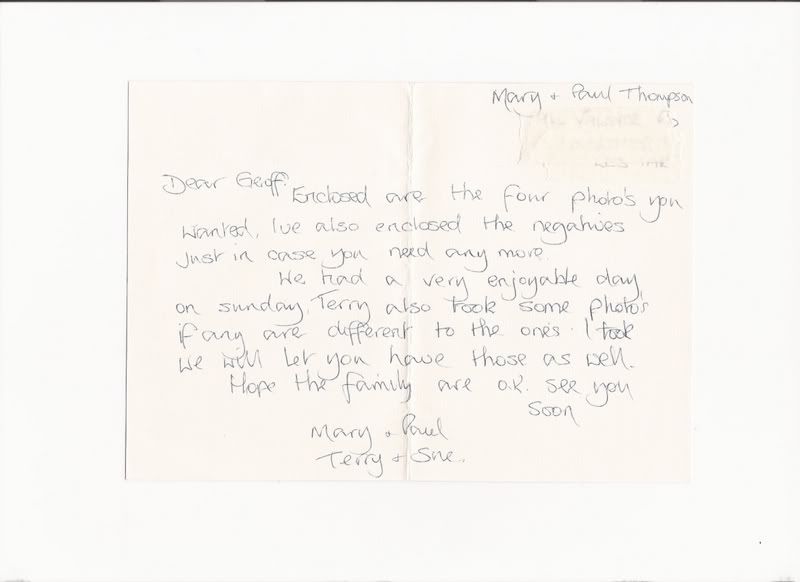 Mary + Paul Thompson
Dear Geoff.
Enclosed are the four photo's you
wanted, I've also enclosed the negatives
just in case you need any more.
We had a very enjoyable day
on sunday, Terry also took some photo's
if any are different to the one's I took
we will let you have those as well.
Hope the family are o.k. see you
soon
Mary + Paul
Terry + Sue.